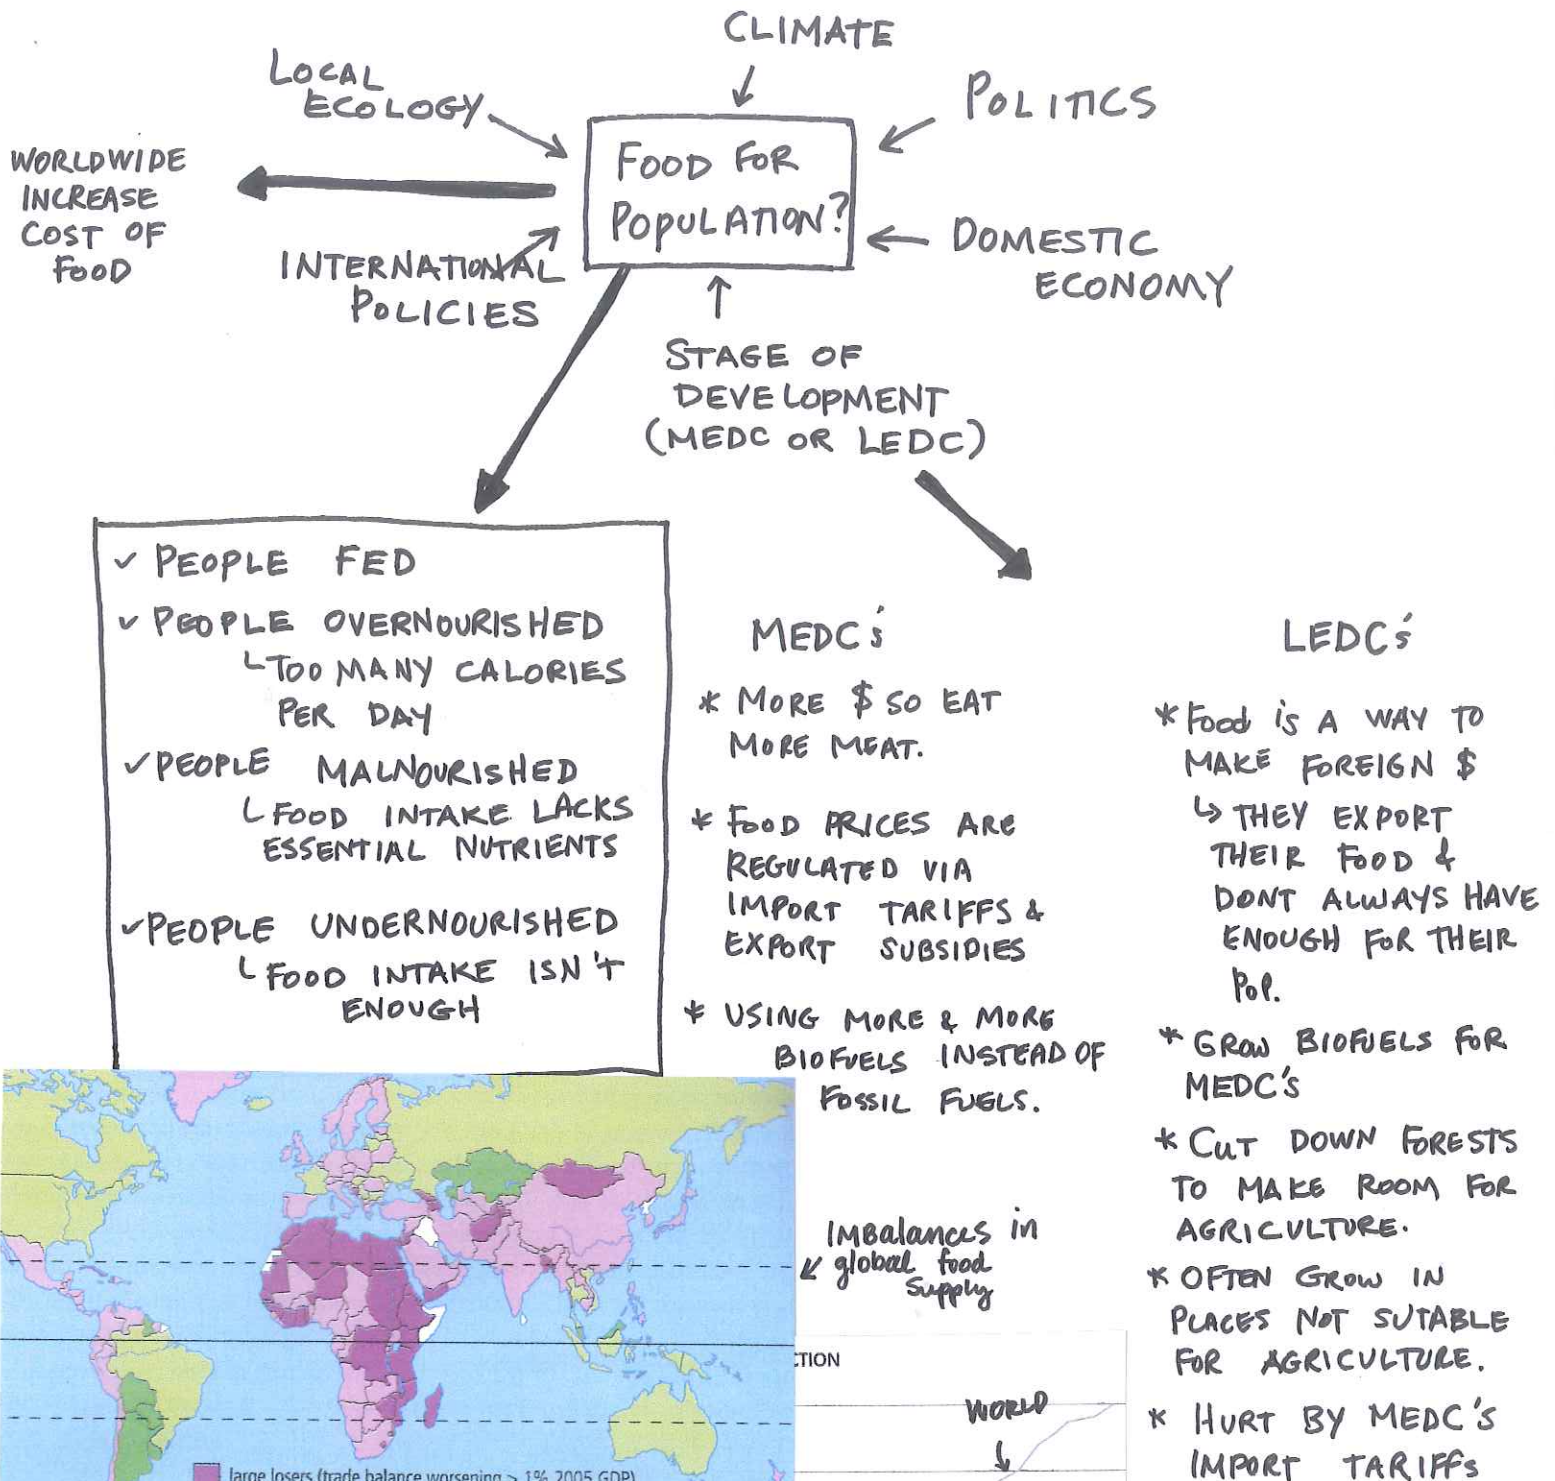 CLIMATE
LOCAL
ECOLOGY
POLITICS
WORLDWIDE
INCREASE
COST OF
FOOD
FOOD FOR
POPULATION?
INTERNATIONAL
POLICIES
DOMESTIC
ECONOMY
STAGE OF
DEVELOPMENT
(MEDC OR LEDC)
✓ PEOPLE FED
✓ PEOPLE OVERNOURISHED
TOO MANY CALORIES
PER DAY
✓ PEOPLE MALNOURISHED
FOOD INTAKE LACKS
ESSENTIAL NUTRIENTS
✓ PEOPLE UNDERNOURISHED
FOOD INTAKE ISN'T
ENOUGH
MEDC's
* MORE $ SO EAT
MORE MEAT.
* FOOD PRICES ARE
REGULATED VIA
IMPORT TARIFFS &
EXPORT SUBSIDIES
* USING MORE & MORE
BIOFUELS INSTEAD OF
FOSSIL FUELS.
LEDC's
* Food is A WAY TO
MAKE FOREIGN $
↳ THEY EXPORT
THEIR FOOD &
DONT ALWAYS HAVE
ENOUGH FOR THEIR
POP.
* GROW BIOFUELS FOR
MEDC'S
* CUT DOWN FORESTS
TO MAKE ROOM FOR
AGRICULTURE.
* OFTEN GROW IN
PLACES NOT SUTABLE
FOR AGRICULTURE.
* HURT BY MEDC'S
IMPORT TARIFFS
IMBalances in
global food
Supply
CTION
WORLD
large losers (trade balance worsening > 1% 2005 GDP)